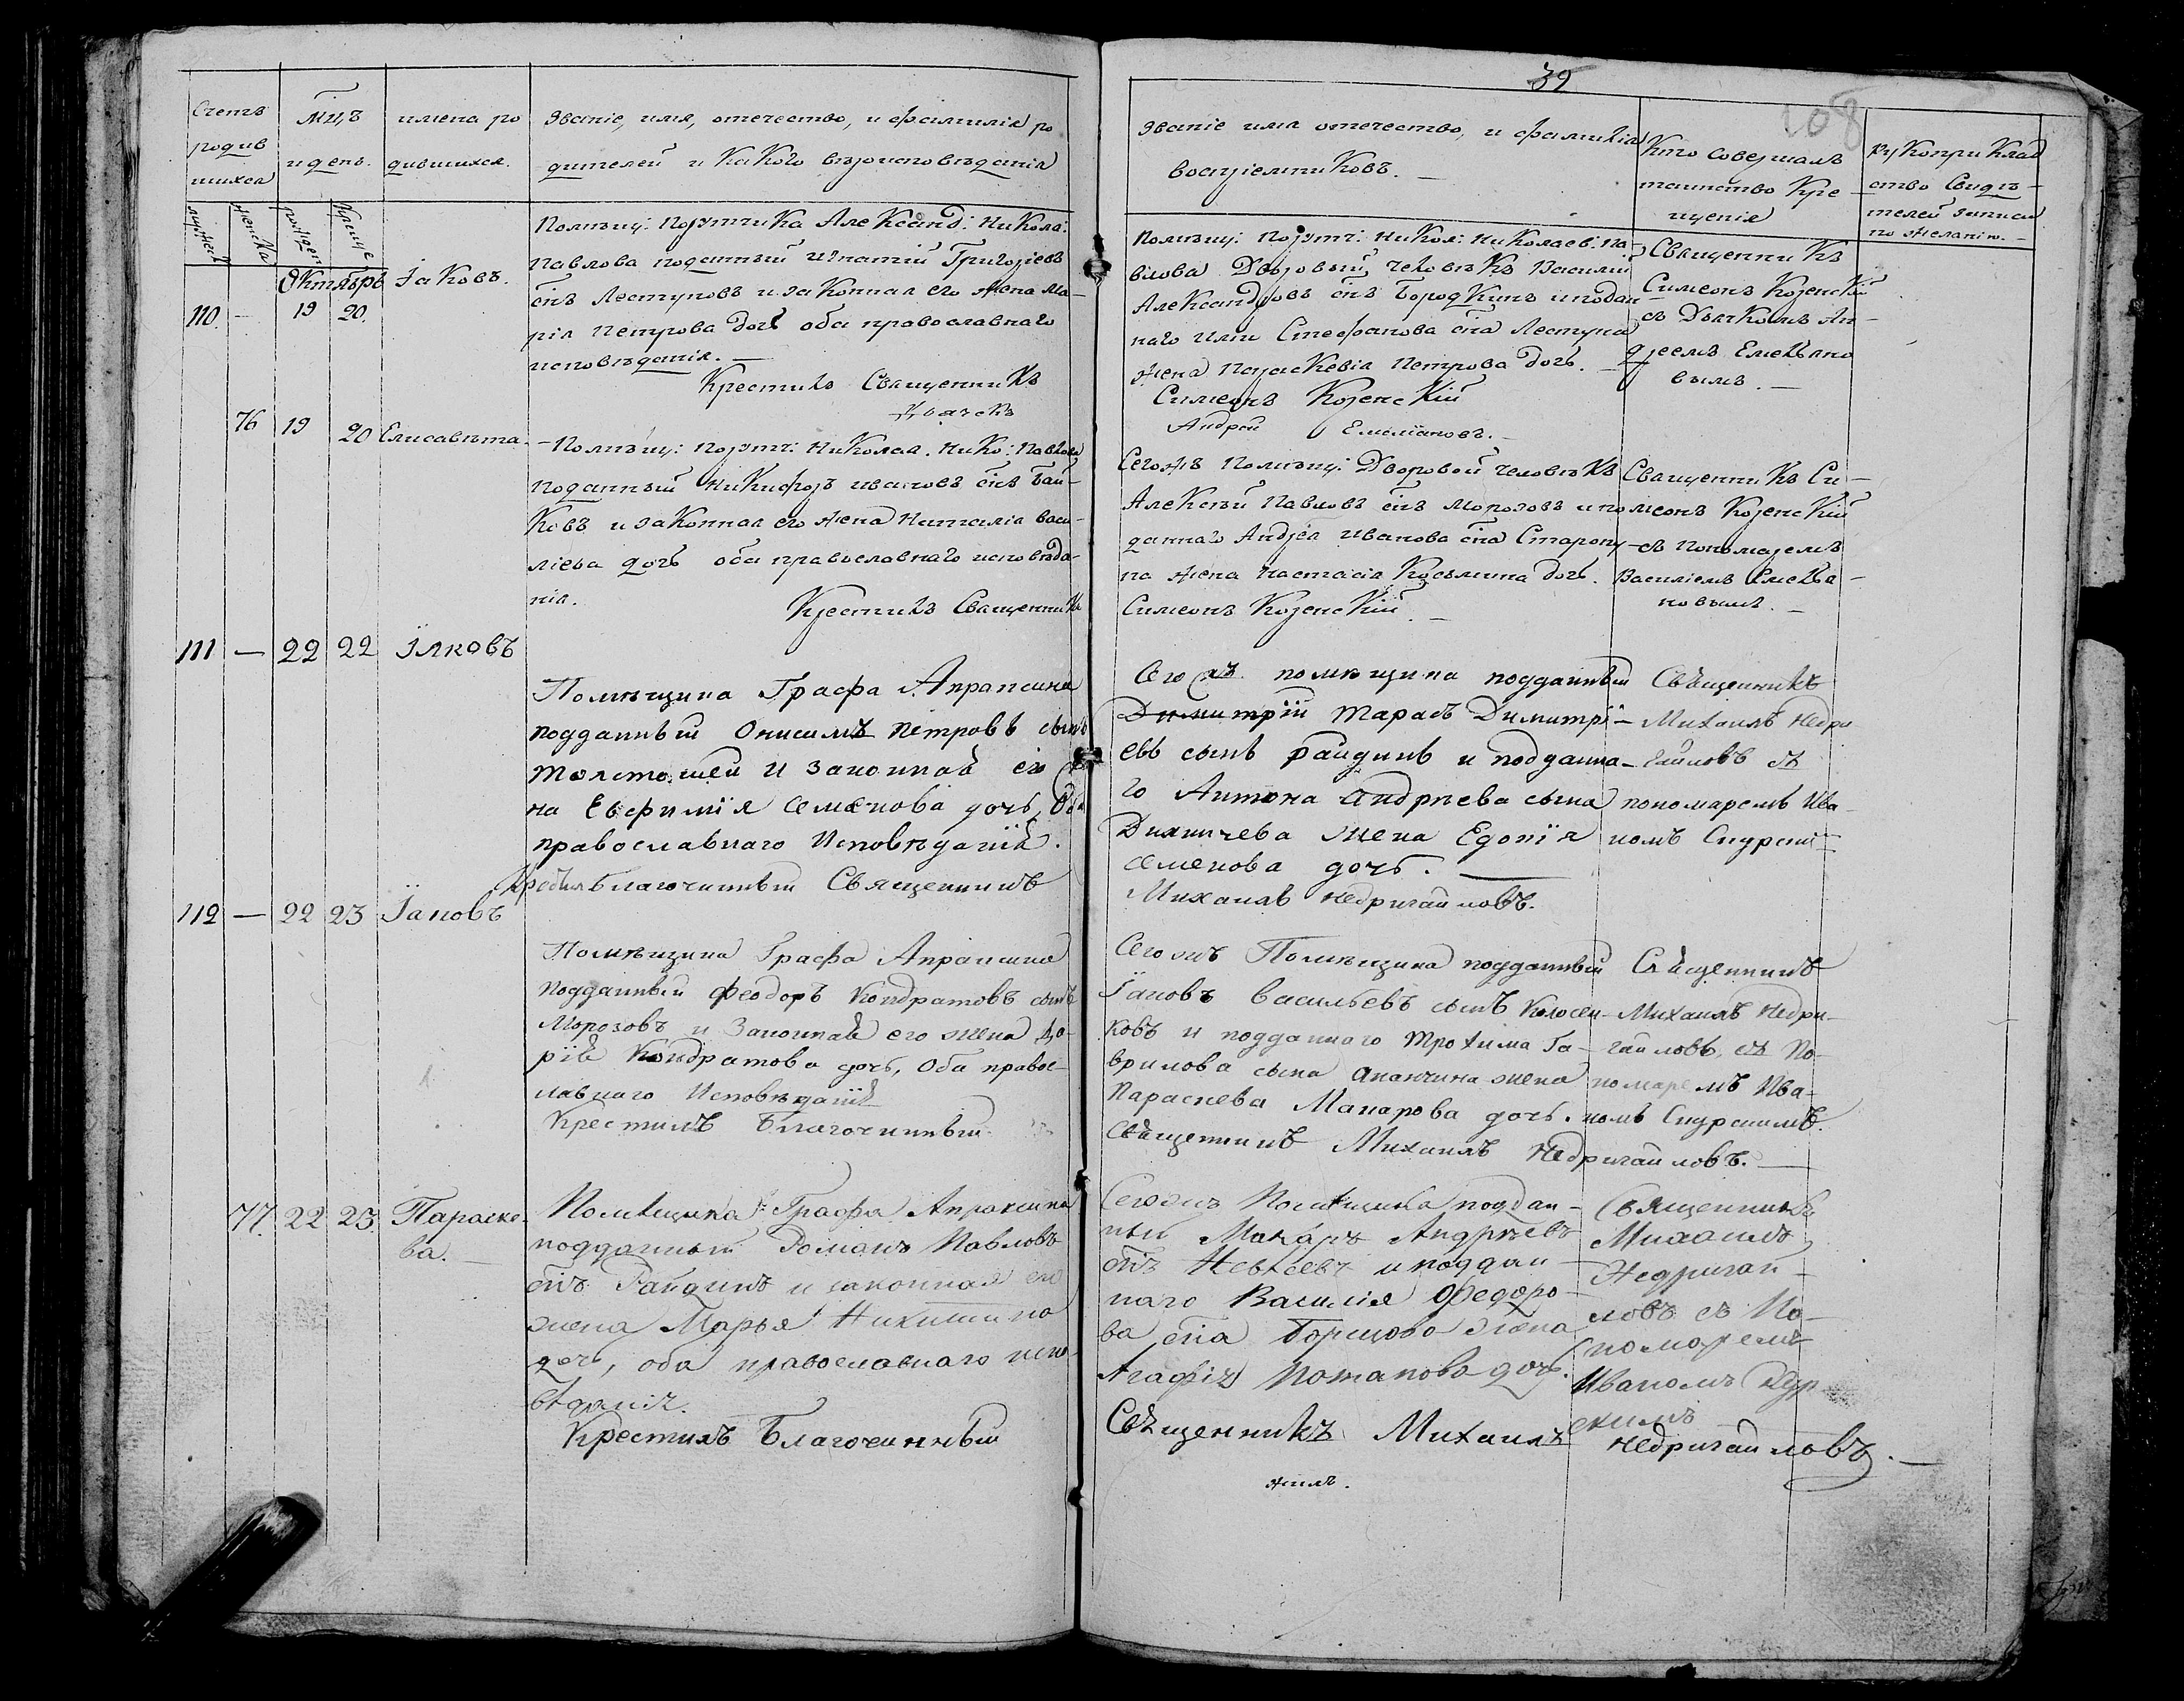 39
108
Счетъ родив шихся
Мцъ и день.
имена ро дившихся.
Званіе, имя, отечество, и фамилія ро
дителей и какого вѣроисповѣданія
Званіе имя отечество, и фамилія
воспріемниковъ. —
Кто совершалъ
таинство Кре
щенія
рукоприклад
ство Свидѣ-
телей записи
по желанію. —
мужеск
женска
рожден
креще
Октябрь
110. — 19 20. Іаковъ.
Помѣщ: Порутчика Александ: Никола:
Павлова поданный Игнатій Григоріевъ
снъ Лестуновъ и законная его жена Ма-
рія Петрова дочъ оба православнаго
исповѣданія. —
Крестилъ Священникъ
Дьячекъ
Помѣщ: Порутч: Никол: Николаев: Па-
влова Дворовый человѣкъ Василій
Александровъ снъ Бородкинъ и подан-
наго Стефанова сна Лестуна
жена Параскевія Петрова дочь. —
Симеонъ Козенскій
Андрей Емеліановъ. —
Священникъ
Симеонъ Козенскій
съ Дьячкомъ Ан-
дреемъ Емельяно
вымъ. —
76 19 20 Елисавѣта.
— Помѣщ: Порутч: Николая. Нико: Павлова
поданный Никифоръ Ивановъ снъ Бай-
ковъ и законная его жена Наталія Васи-
ліева дочъ оба православнаго исповѣда-
нія.
Крестилъ Священникъ
Сегожъ Помѣщ: Дворовой человѣкъ
Алексѣй Павловъ снъ Морозовъ и по
даннаго Андрея Иванова сна Старону-
на жена Настасія Косьмина дочь.
Симеонъ Козенскій. —
Священникъ Си-
меонъ Козенскій
съ Пономаремъ
Василіемъ Емелья-
новымъ. —
111 — 22 22 Іяковъ
Помѣщика Графа Апраксина
подданный Онисимъ Петровъ сынъ
Толстошеи и законная его же
на Евфимія Семенова дочь, Оба
православнаго Исповѣданія.
Крестилъ Благочинный Священникъ
Сего жъ помѣщика подданный
Димитрій Тарасъ Димитрі-
евъ сынъ Райдинъ и подданна-
го Антона Андрѣева сына
Дихничева жена Едокія
Семенова дочь. —
Михаилъ Недригайловъ.
Свѣщенникъ
Михаилъ Недри
гайловъ съ
пономаремъ Ива
номъ
112 — 22 23 Іаковъ
Помѣщика Графа Апраксина
подданный Феодоръ Кондратовъ сынъ
Морозовъ и Законная его жена Да-
рія Кондратова дочь, Оба правос-
лавнаго Исповѣданія
Крестилъ Благочинный
Сегожъ Помѣщика подданный
Іаковъ Васильевъ сынъ Колосни-
ковъ и подданнаго Трохима Га-
врилова сына Апанчина жена
Параскева Макарова дочь.
Свѣщенникъ Михаилъ Недригайловъ. —
Свѣщенникъ
Михаилъ Недри-
гайловъ, съ По-
номаремъ Ива-
номъ
77. 22 23. Параске-
ва. —
Помѣщика Графа Апраксина
подданный Романъ Павловъ
снъ Райдинъ и законная его
жена Марья Никитина
дочь, оба православнаго испо-
вѣданія.
Крестилъ Благочинный
Сегожъ Помѣщика поддан-
ный Макаръ Андрѣевъ
снъ Невѣевъ и поддан-
наго Василія Федоро-
ва сна Борщова жена
Агафія Потапова дочь.
Свѣщенникъ Михаилъ Недригайловъ. —
Священникъ
Михаилъ
Недригай-
ловъ съ По-
номаремъ
Иваномъ